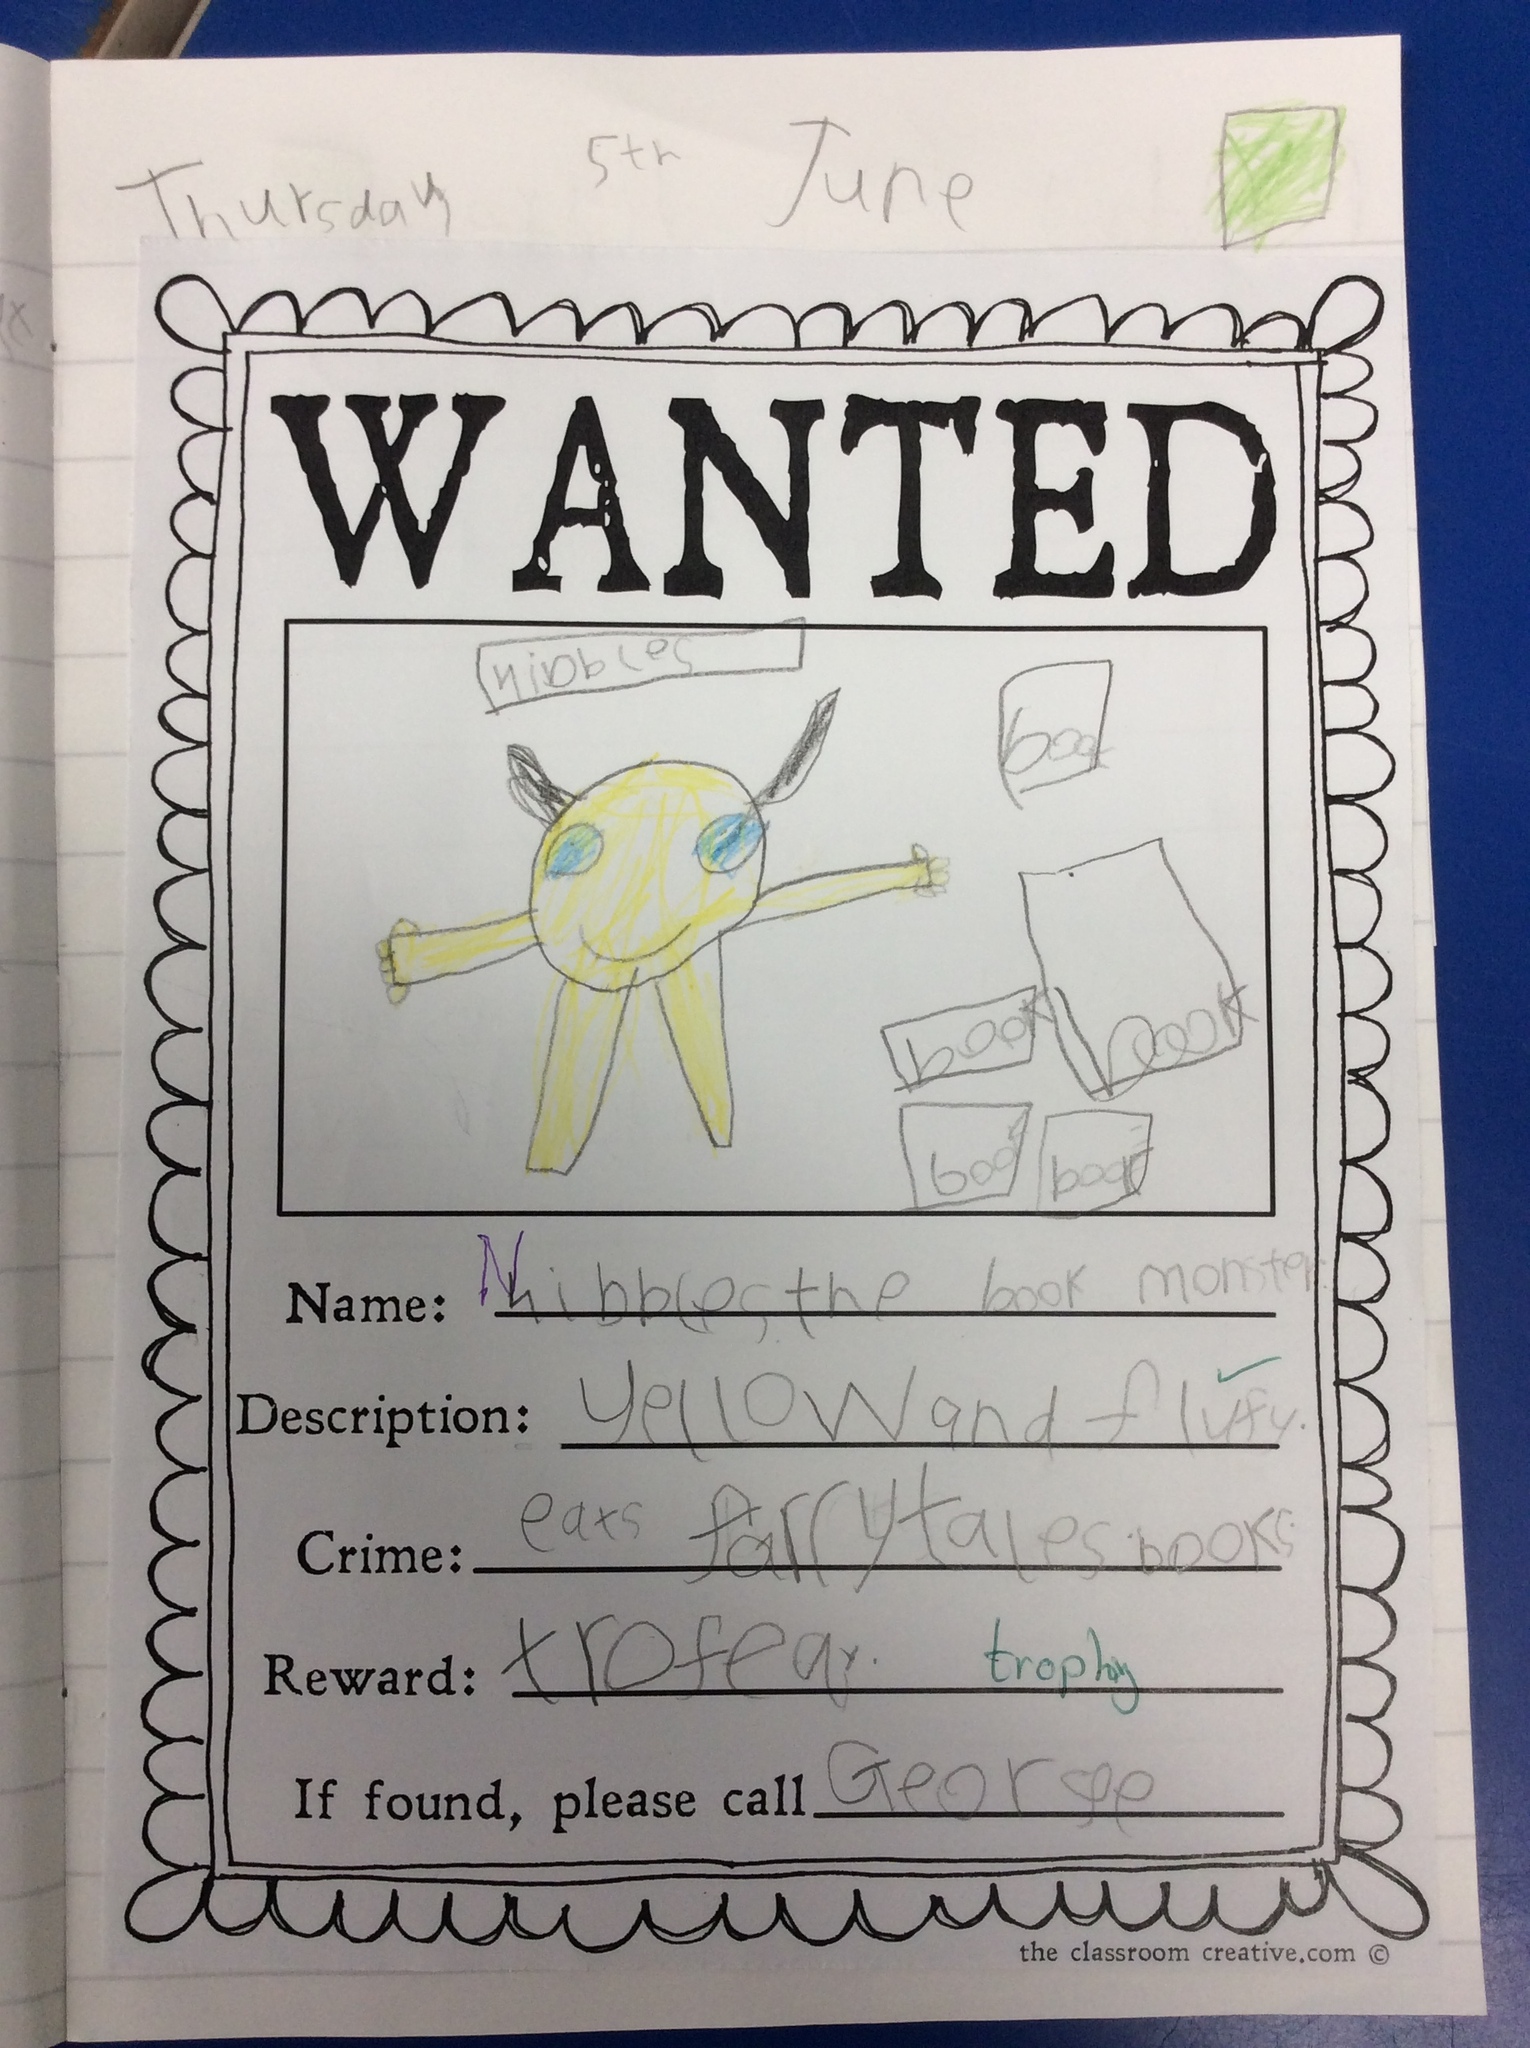 Thursday 5th June
WANTED
nibbles
book
book
book
book
book
Name: Nibbles the book monster.
Description: yellow and flufy.
Crime: eats fairrytales books
Reward: trofear. trophy
If found, please call George
the classroom creative.com ©